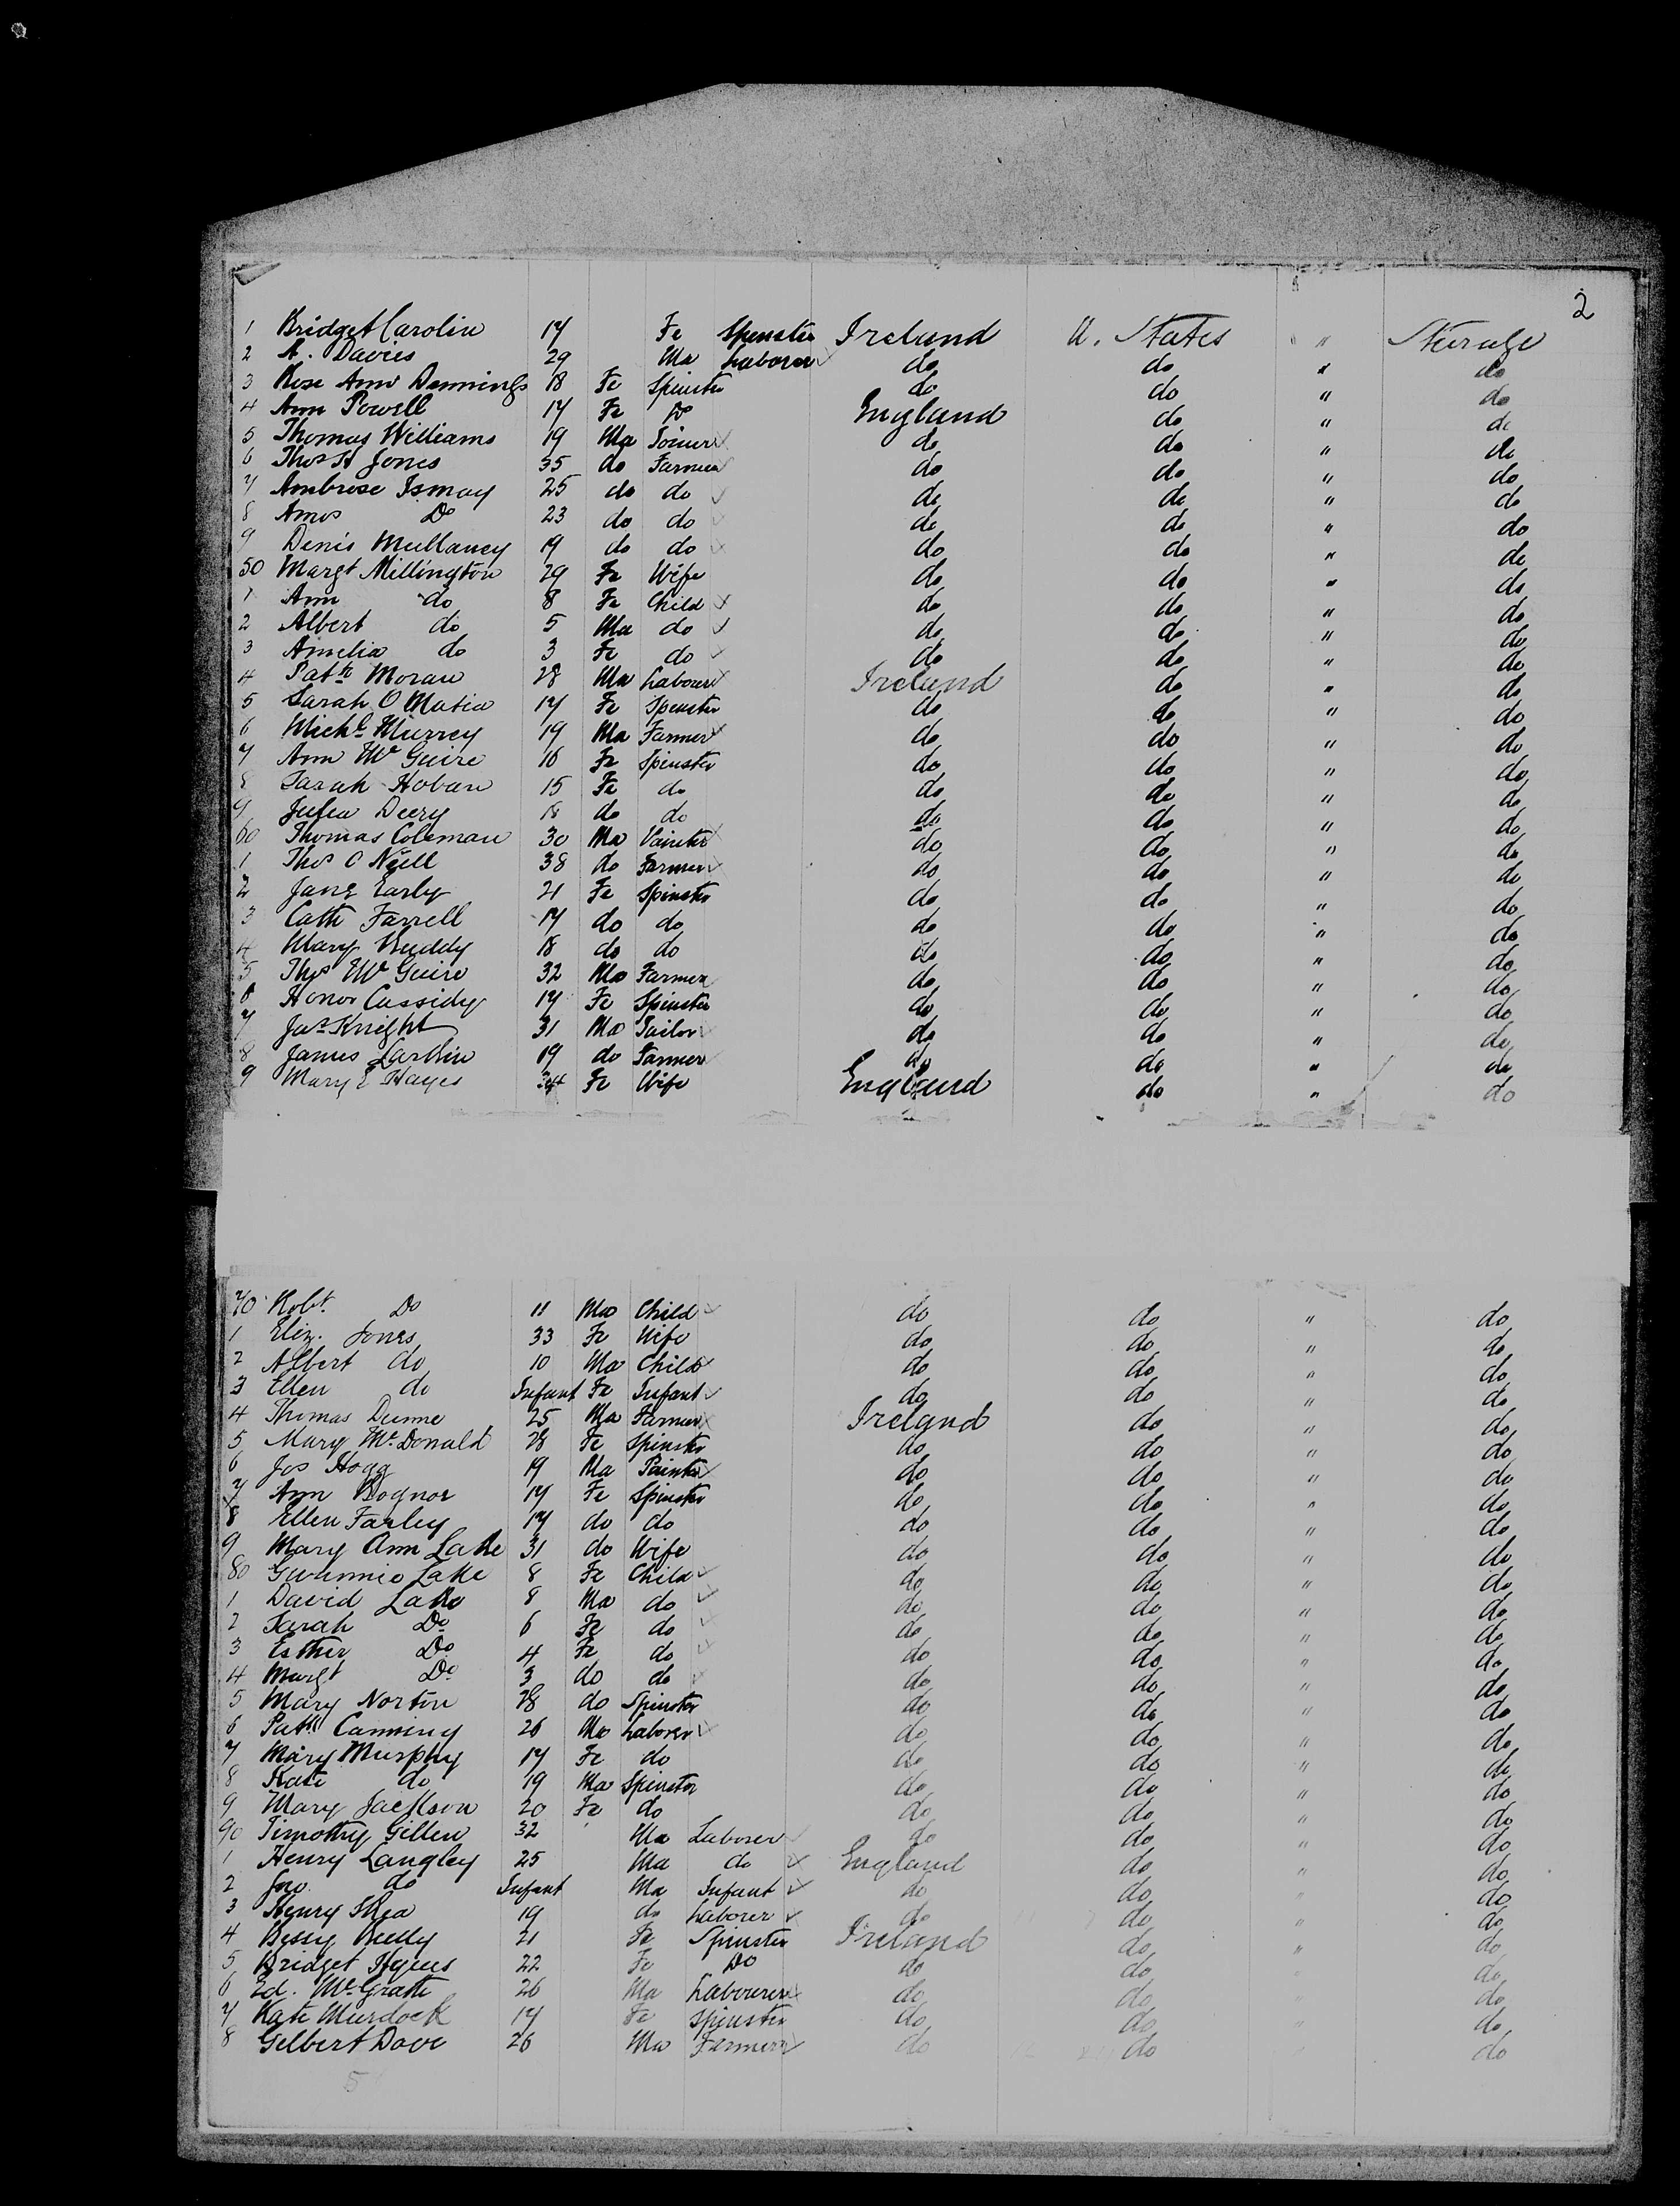 2
1 Bridget Carolin 17 Fe Spinster Ireland U. States " Steerage
2 A. Davies 29 Ma Laborer do do " do
3 Rose Ann Dennings 18 Fe Spinster do do " do
4 Ann Powell 17 Fe Do England do " do
5 Thomas Williams 19 Ma Joiner do do " do
6 Thos H Jones 35 do Farmer do do " do
7 Ambrose Ismay 25 do do do do " do
8 Amos Do 23 do do do do " do
9 Denis Mullaney 19 do do do do " do
50 Margt Millington 29 Fe Wife do do " do
1 Ann do 8 Fe Child do do " do
2 Albert do 5 Ma do do do " do
3 Amelia do 3 Fe do do do " do
4 Patk Moran 28 Ma Labourer Ireland do " do
5 Sarah O Matia 17 Fe Spinster do do " do
6 Michl Murrey 19 Ma Farmer do do " do
7 Ann Mc Guire 16 Fe Spinster do do " do
8 Sarah Hoban 15 Fe do do do " do
9 Julia Deery 18 do do do do " do
60 Thomas Coleman 30 Ma Painter do do " do
1 Thos O Neill 38 do Farmer do do " do
2 Jane Early 21 Fe Spinster do do " do
3 Cath Farrell 17 do do do do " do
4 Mary Ruddy 18 do do do do " do
5 Thos Mc Guire 32 Ma Farmer do do " do
6 Honor Cassidy 17 Fe Spinster do do " do
7 Jas Knight 31 Ma Tailor do do " do
8 James Larkin 19 do Farmer do do " do
9 Mary E Hayes 34 Fe Wife England do " do
70 Robt. Do 11 Ma Child do do " do
1 Eliz. Jones 33 Fe Wife do do " do
2 Albert do 10 Ma Child do do " do
3 Ellen do Infant Fe Infant do do " do
4 Thomas Dunne 25 Ma Farmer Ireland do " do
5 Mary Mc Donald 28 Fe Spinster do do " do
6 Jos Hogg 19 Ma Painter do do " do
7 Ann Bognor 17 Fe Spinster do do " do
8 Ellen Farley 17 do do do do " do
9 Mary Ann Lake 31 do Wife do do " do
80 Gwinnie Lake 8 Fe Child do do " do
1 David Lake 8 Ma do do do " do
2 Sarah Do 6 Fe do do do " do
3 Esther Do 4 Fe do do do " do
4 Margt Do 3 do do do do " do
5 Mary Norton 28 do Spinster do do " do
6 Patk Canning 26 Ma Laborer do do " do
7 Mary Murphy 17 Fe do do do " do
8 Kate do 19 Ma Spinster do do " do
9 Mary Jackson 20 Fe do do do " do
90 Timothy Gillen 32 Ma Laborer do do " do
1 Henry Langley 25 Ma do England do " do
2 Jno. do Infant Ma Infant do do " do
3 Henry Shea 19 do Laborer do do " do
4 Bessy Reilly 21 Fe Spinster Ireland do " do
5 Bridget Hynes 22 Fe Do do do " do
6 Ed. McGrath 26 Ma Labourer do do " do
7 Kate Murdock 17 Fe Spinster do do " do
8 Gilbert Dove 26 Ma Farmer do do " do
5